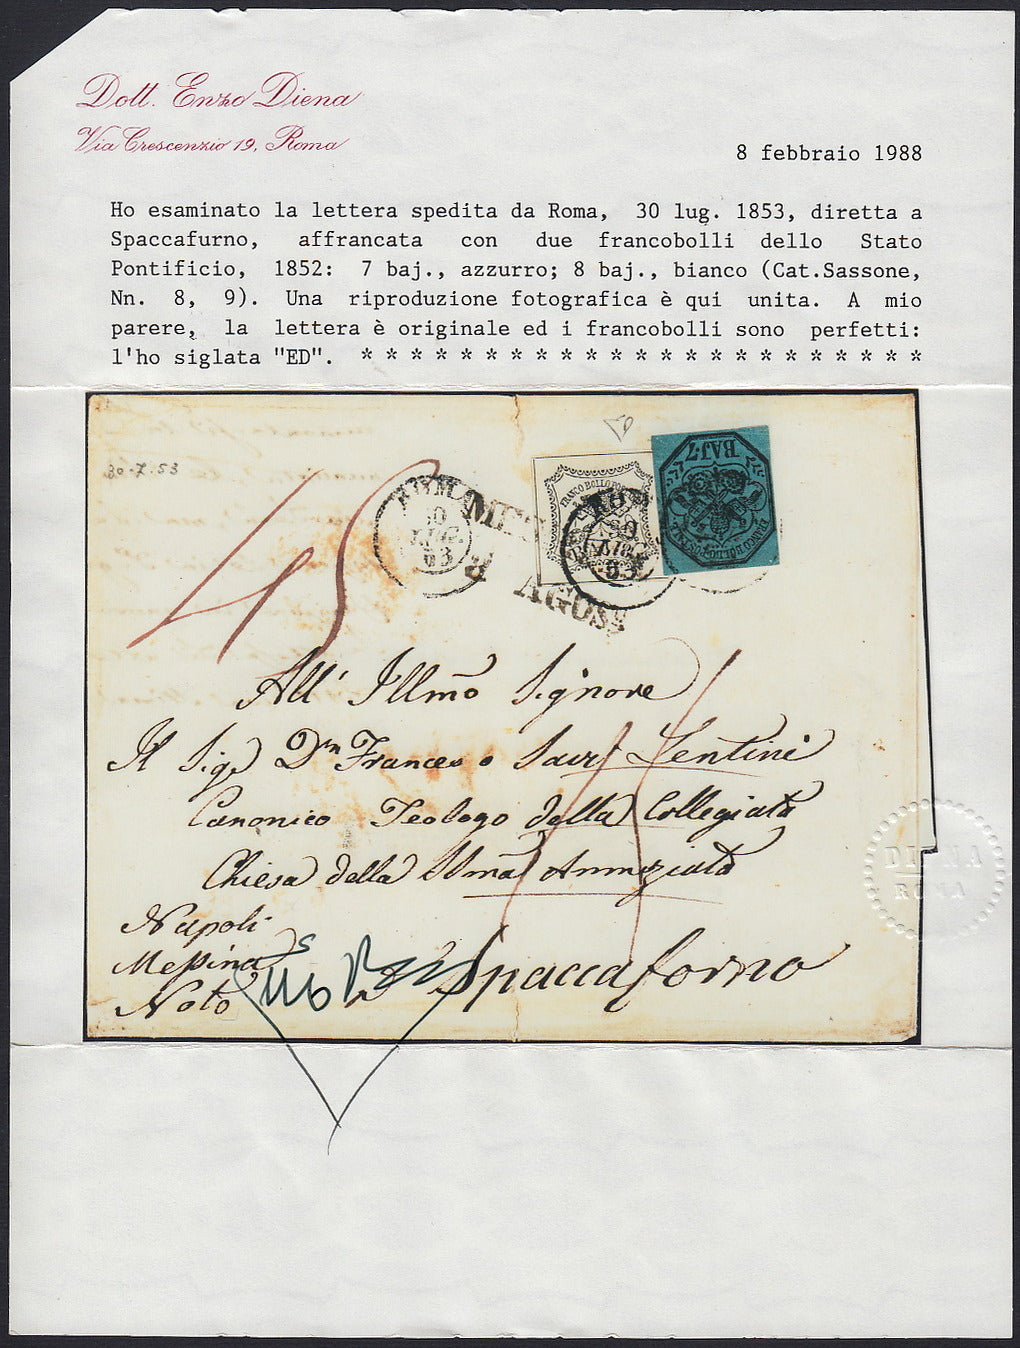 Dott. Enzo Diena
Via Crescenzio 19, Roma
8 febbraio 1988
Ho esaminato la lettera spedita da Roma, 30 lug. 1853, diretta a
Spaccafurno, affrancata con due francobolli dello Stato
Pontificio, 1852: 7 baj., azzurro; 8 baj., bianco (Cat.Sassone,
Nn. 8, 9). Una riproduzione fotografica è qui unita. A mio
parere, la lettera è originale ed i francobolli sono perfetti:
l'ho siglata "ED". * * * * * * * * * * * * * * * * * * * * * * *
30.7.53
ROMA
30
LUG.
53
8
AGOS
FRANCO BOLLO
BAJ.7
FRANCO BOLLO POSTALE
All' Illmo Signore
Il Sigr Dn Francesco Savr Lentini
Canonico Teologo della Collegiata
Chiesa della Annuziata
Napoli
Messina
Noto
Spaccaforno
DIENA
ROMA